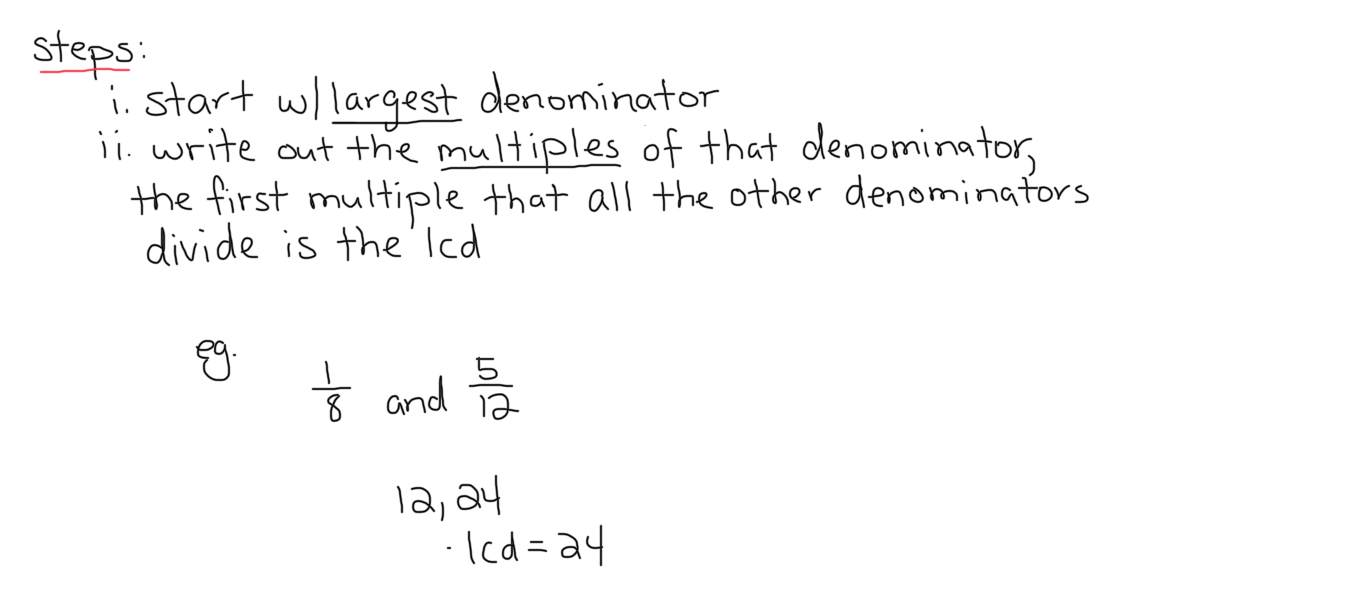 steps:
i. start w/ largest denominator
ii. write out the multiples of that denominator,
the first multiple that all the other denominators
divide is the lcd
eg. 1/8 and 5/12
12, 24
· lcd = 24